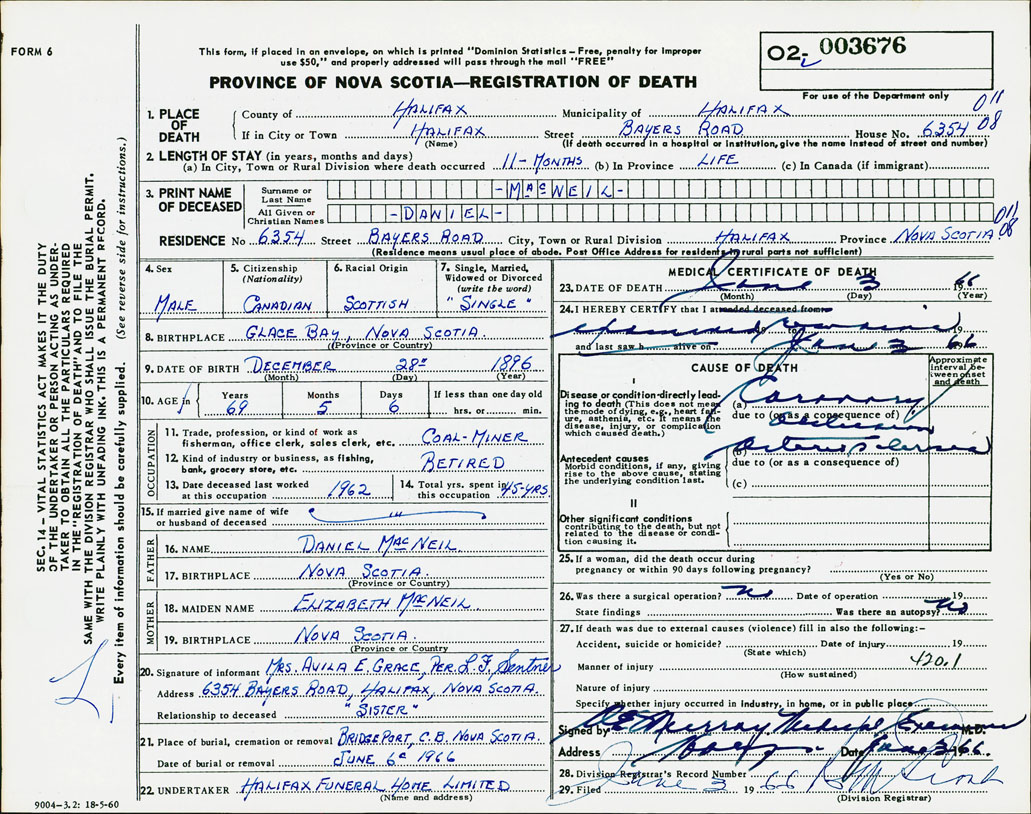 FORM 6
This form, if placed in an envelope, on which is printed "Dominion Statistics – Free, penalty for improper
use $50," and properly addressed will pass through the mail "FREE"
PROVINCE OF NOVA SCOTIA—REGISTRATION OF DEATH
02- 003676
For use of the Department only
011
08
1. PLACE OF DEATH
County of HALIFAX Municipality of HALIFAX
If in City or Town HALIFAX Street BAYERS ROAD House No. 6354
(Name) (If death occurred in a hospital or institution, give the name instead of street and number)
2. LENGTH OF STAY (in years, months and days)
(a) In City, Town or Rural Division where death occurred 11-MONTHS (b) In Province LIFE (c) In Canada (if immigrant)
3. PRINT NAME OF DECEASED
Surname or Last Name -MACNEIL-
All Given or Christian Names -DANIEL-
011
08
RESIDENCE No 6354 Street BAYERS ROAD City, Town or Rural Division HALIFAX Province NOVA SCOTIA
(Residence means usual place of abode. Post Office Address for residents in rural parts not sufficient)
4. Sex
MALE
5. Citizenship
(Nationality)
CANADIAN
6. Racial Origin
SCOTTISH
7. Single, Married,
Widowed or Divorced
(write the word)
"SINGLE"
8. BIRTHPLACE GLACE BAY, NOVA SCOTIA
(Province or Country)
9. DATE OF BIRTH DECEMBER 28 1896
(Month) (Day) (Year)
10. AGE
Years Months Days If less than one day old
69 5 6 hrs. or min.
OCCUPATION
11. Trade, profession, or kind of work as
fisherman, office clerk, sales clerk, etc. COAL-MINER
12. Kind of industry or business, as fishing,
bank, grocery store, etc. RETIRED
13. Date deceased last worked
at this occupation 1962
14. Total yrs. spent in
this occupation 45-YRS.
15. If married give name of wife
or husband of deceased
FATHER
16. NAME DANIEL MACNEIL
17. BIRTHPLACE NOVA SCOTIA.
(Province or Country)
MOTHER
18. MAIDEN NAME ELIZABETH MACNEIL
19. BIRTHPLACE NOVA SCOTIA.
(Province or Country
20. Signature of informant MRS. AVILA E. GRACE, PER. L.F. Sentner
Address 6354 BAYERS ROAD, HALIFAX, NOVA SCOTIA.
Relationship to deceased "SISTER"
21. Place of burial, cremation or removal BRIDGEPORT, C.B. NOVA SCOTIA.
Date of burial or removal JUNE 6 1966
22. UNDERTAKER HALIFAX FUNERAL HOME LIMITED
(Name and address)
9004—3.2: 18-5-60
MEDICAL CERTIFICATE OF DEATH
23. DATE OF DEATH June 3 66
(Month) (Day) (Year)
24. I HEREBY CERTIFY that I attended deceased from
examined remains 19
and last saw h alive on June 3 1966
CAUSE OF DEATH
Approximate interval between onset and death
I
Disease or condition directly leading to death (This does not mean
the mode of dying, e.g., heart failure, asthenia, etc. It means the
disease, injury, or complication
which caused death.)
(a) Coronary
due to (or as a consequence of)
occlusion
Antecedent causes
Morbid conditions, if any, giving
rise to the above cause, stating
the underlying condition last.
(b) Arteriosclerosis
due to (or as a consequence of)
(c)
II
Other significant conditions
contributing to the death, but not
related to the disease or condition causing it.
25. If a woman, did the death occur during
pregnancy or within 90 days following pregnancy?
(Yes or No)
26. Was there a surgical operation? No Date of operation 19
State findings Was there an autopsy? No
27. If death was due to external causes (violence) fill in also the following:-
Accident, suicide or homicide? Date of injury 19
(State which)
420.1
Manner of injury
(How sustained)
Nature of injury
Specify whether injury occurred in industry, in home, or in public place
Signed by Murray Medical Examiner M.D.
Address Date June 3 66.
28. Division Registrar's Record Number
29. Filed June 3 1966
(Division Registrar)
SEC. 14 – VITAL STATISTICS ACT MAKES IT THE DUTY
OF THE UNDERTAKER OR PERSON ACTING AS UNDER-
TAKER TO OBTAIN ALL THE PARTICULARS REQUIRED
IN THE "REGISTRATION OF DEATH" AND TO FILE THE
SAME WITH THE DIVISION REGISTRAR WHO SHALL ISSUE THE BURIAL PERMIT.
WRITE PLAINLY WITH UNFADING INK. THIS IS A PERMANENT RECORD.
Every item of information should be carefully supplied. (See reverse side for instructions.)